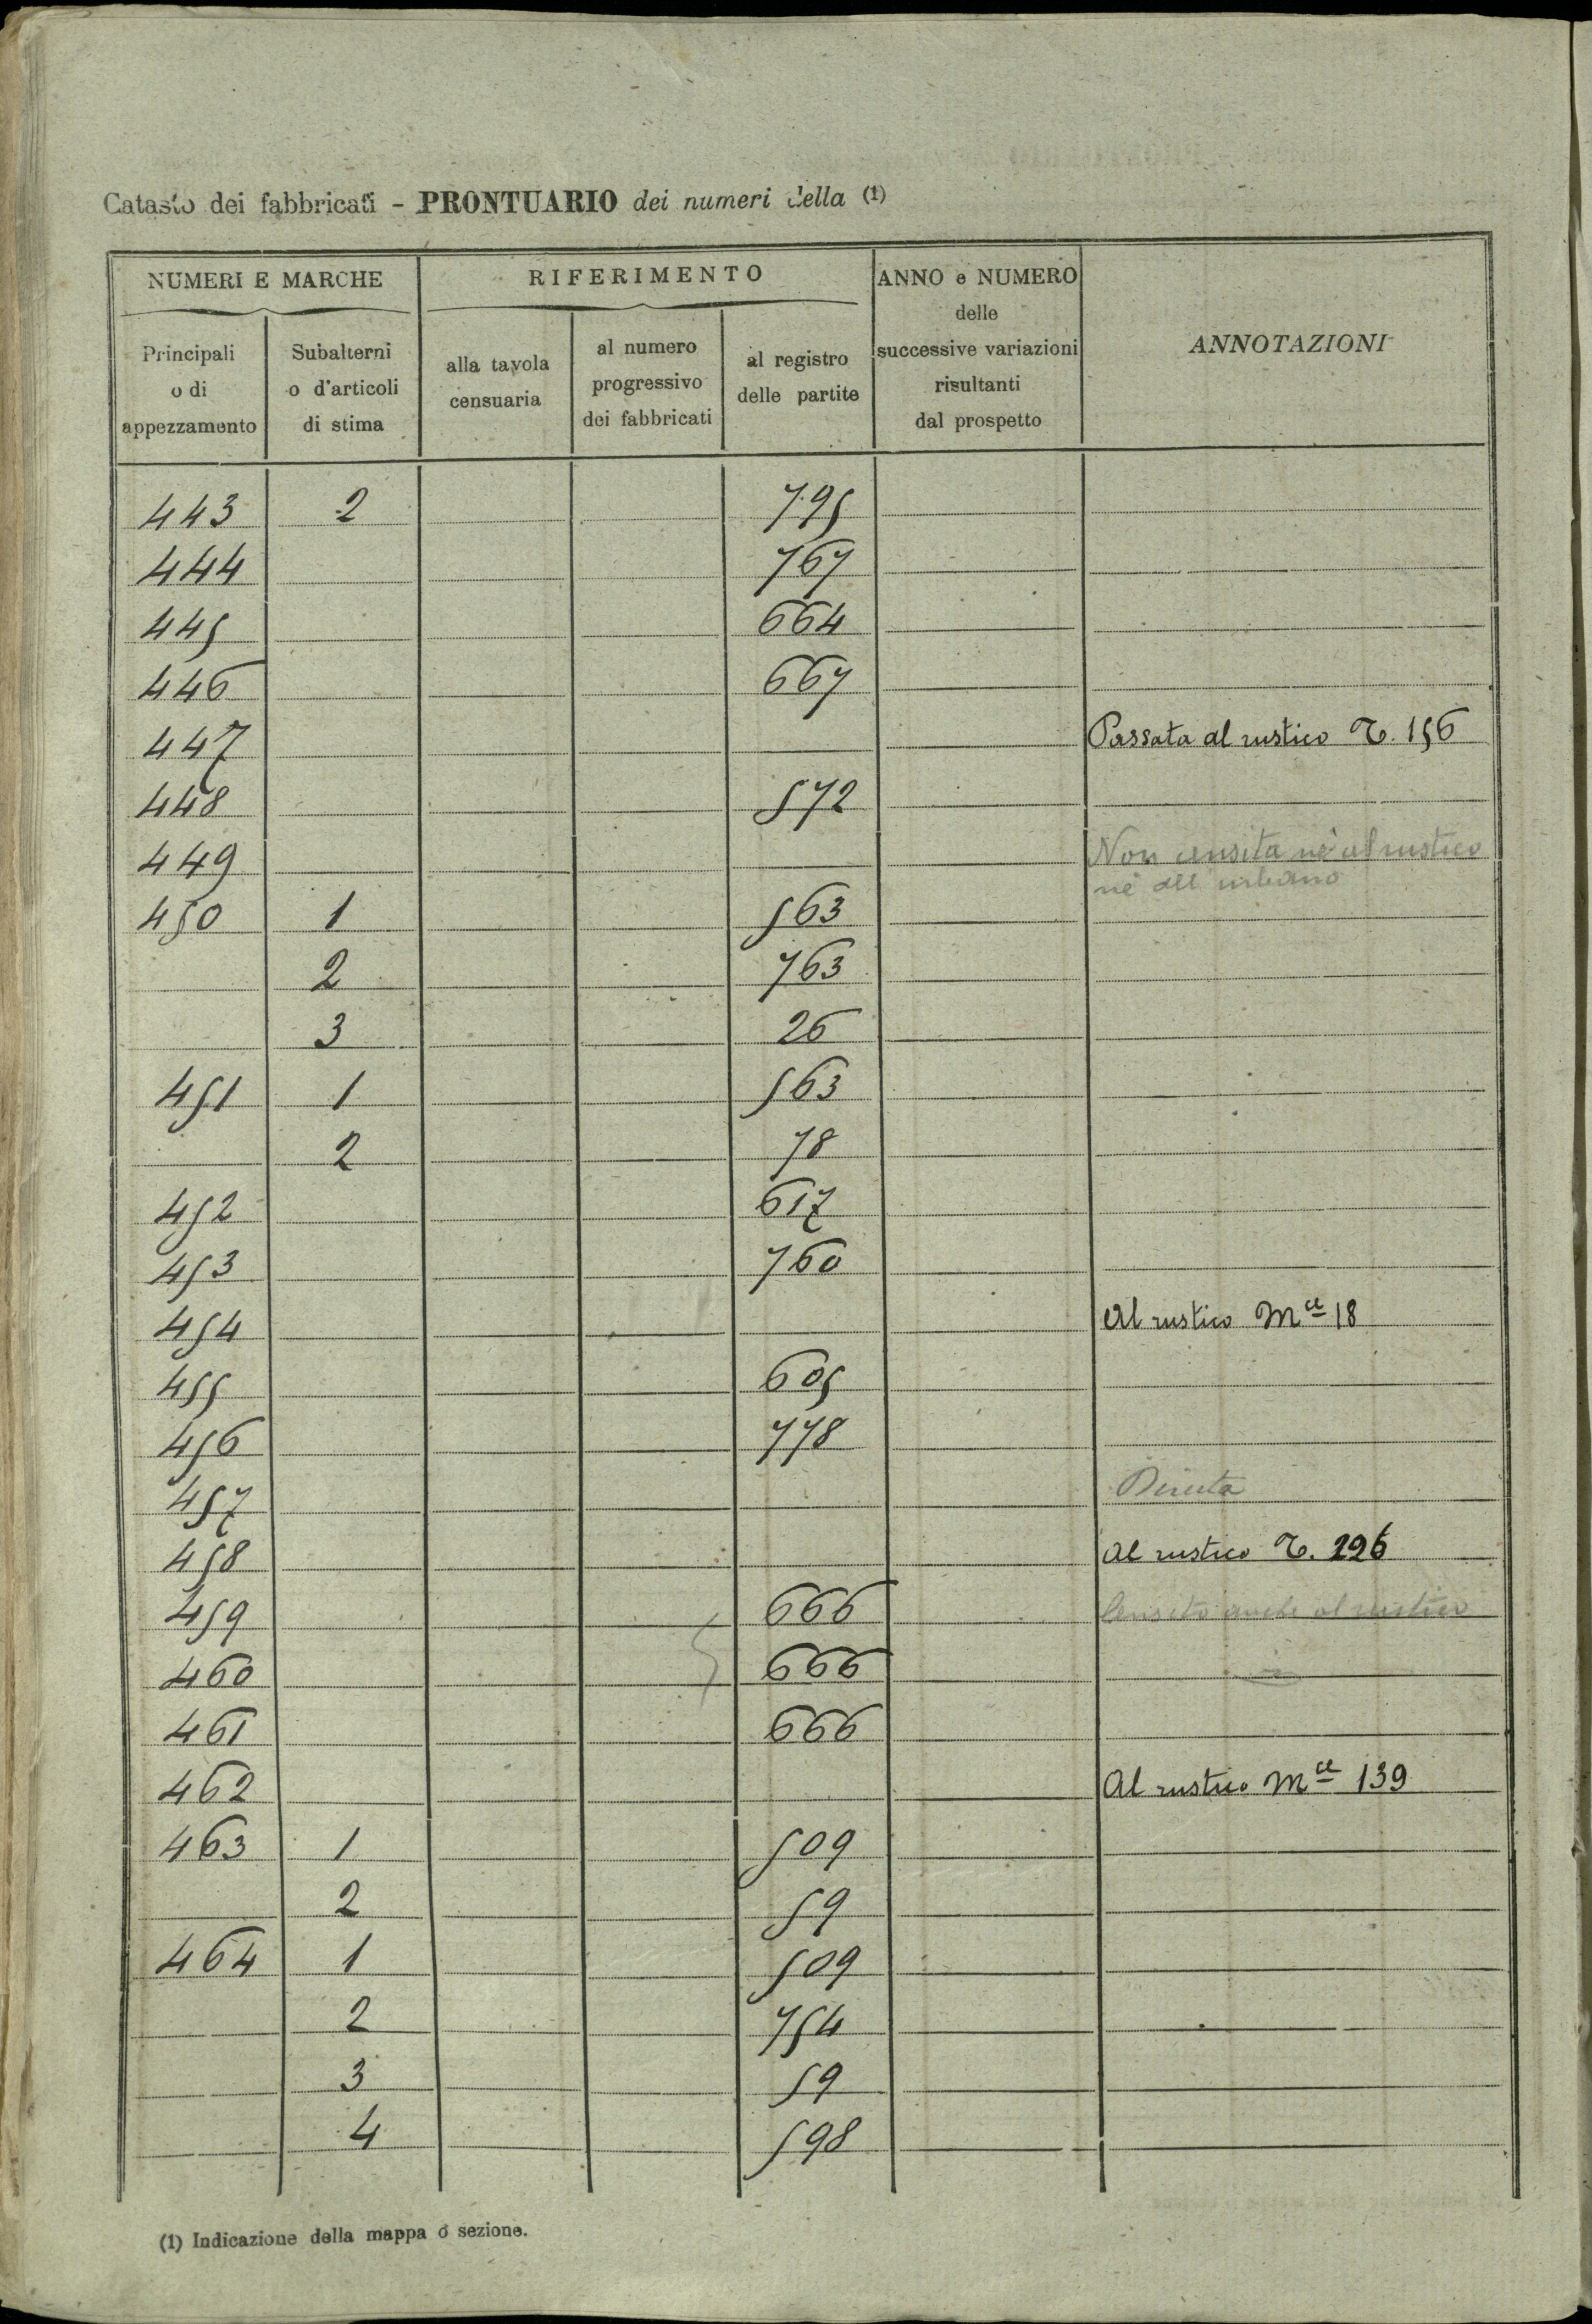 Catasto dei fabbricati - PRONTUARIO dei numeri della (1)
NUMERI E MARCHE
RIFERIMENTO
ANNO e NUMERO
delle
successive variazioni
risultanti
dal prospetto
ANNOTAZIONI
Principali
o di
appezzamento
Subalterni
o d'articoli
di stima
alla tavola
censuaria
al numero
progressivo
dei fabbricati
al registro
delle partite
443 2 795
444 767
445 664
446 667
447 Passata al rustico T. 156
448 572
449 Non censita nè al rustico
nè all'urbano
450 1 563
2 763
3 26
451 1 563
2 78
452 617
453 760
454 Al rustico Mce 18
455 605
456 778
457 Diruta
458 Al rustico T. 296
459 666 Censito anche al rustico
460 666
461 666
462 Al rustico Mce 139
463 1 509
2 59
464 1 509
2 754
3 59
4 598
(1) Indicazione della mappa o sezione.